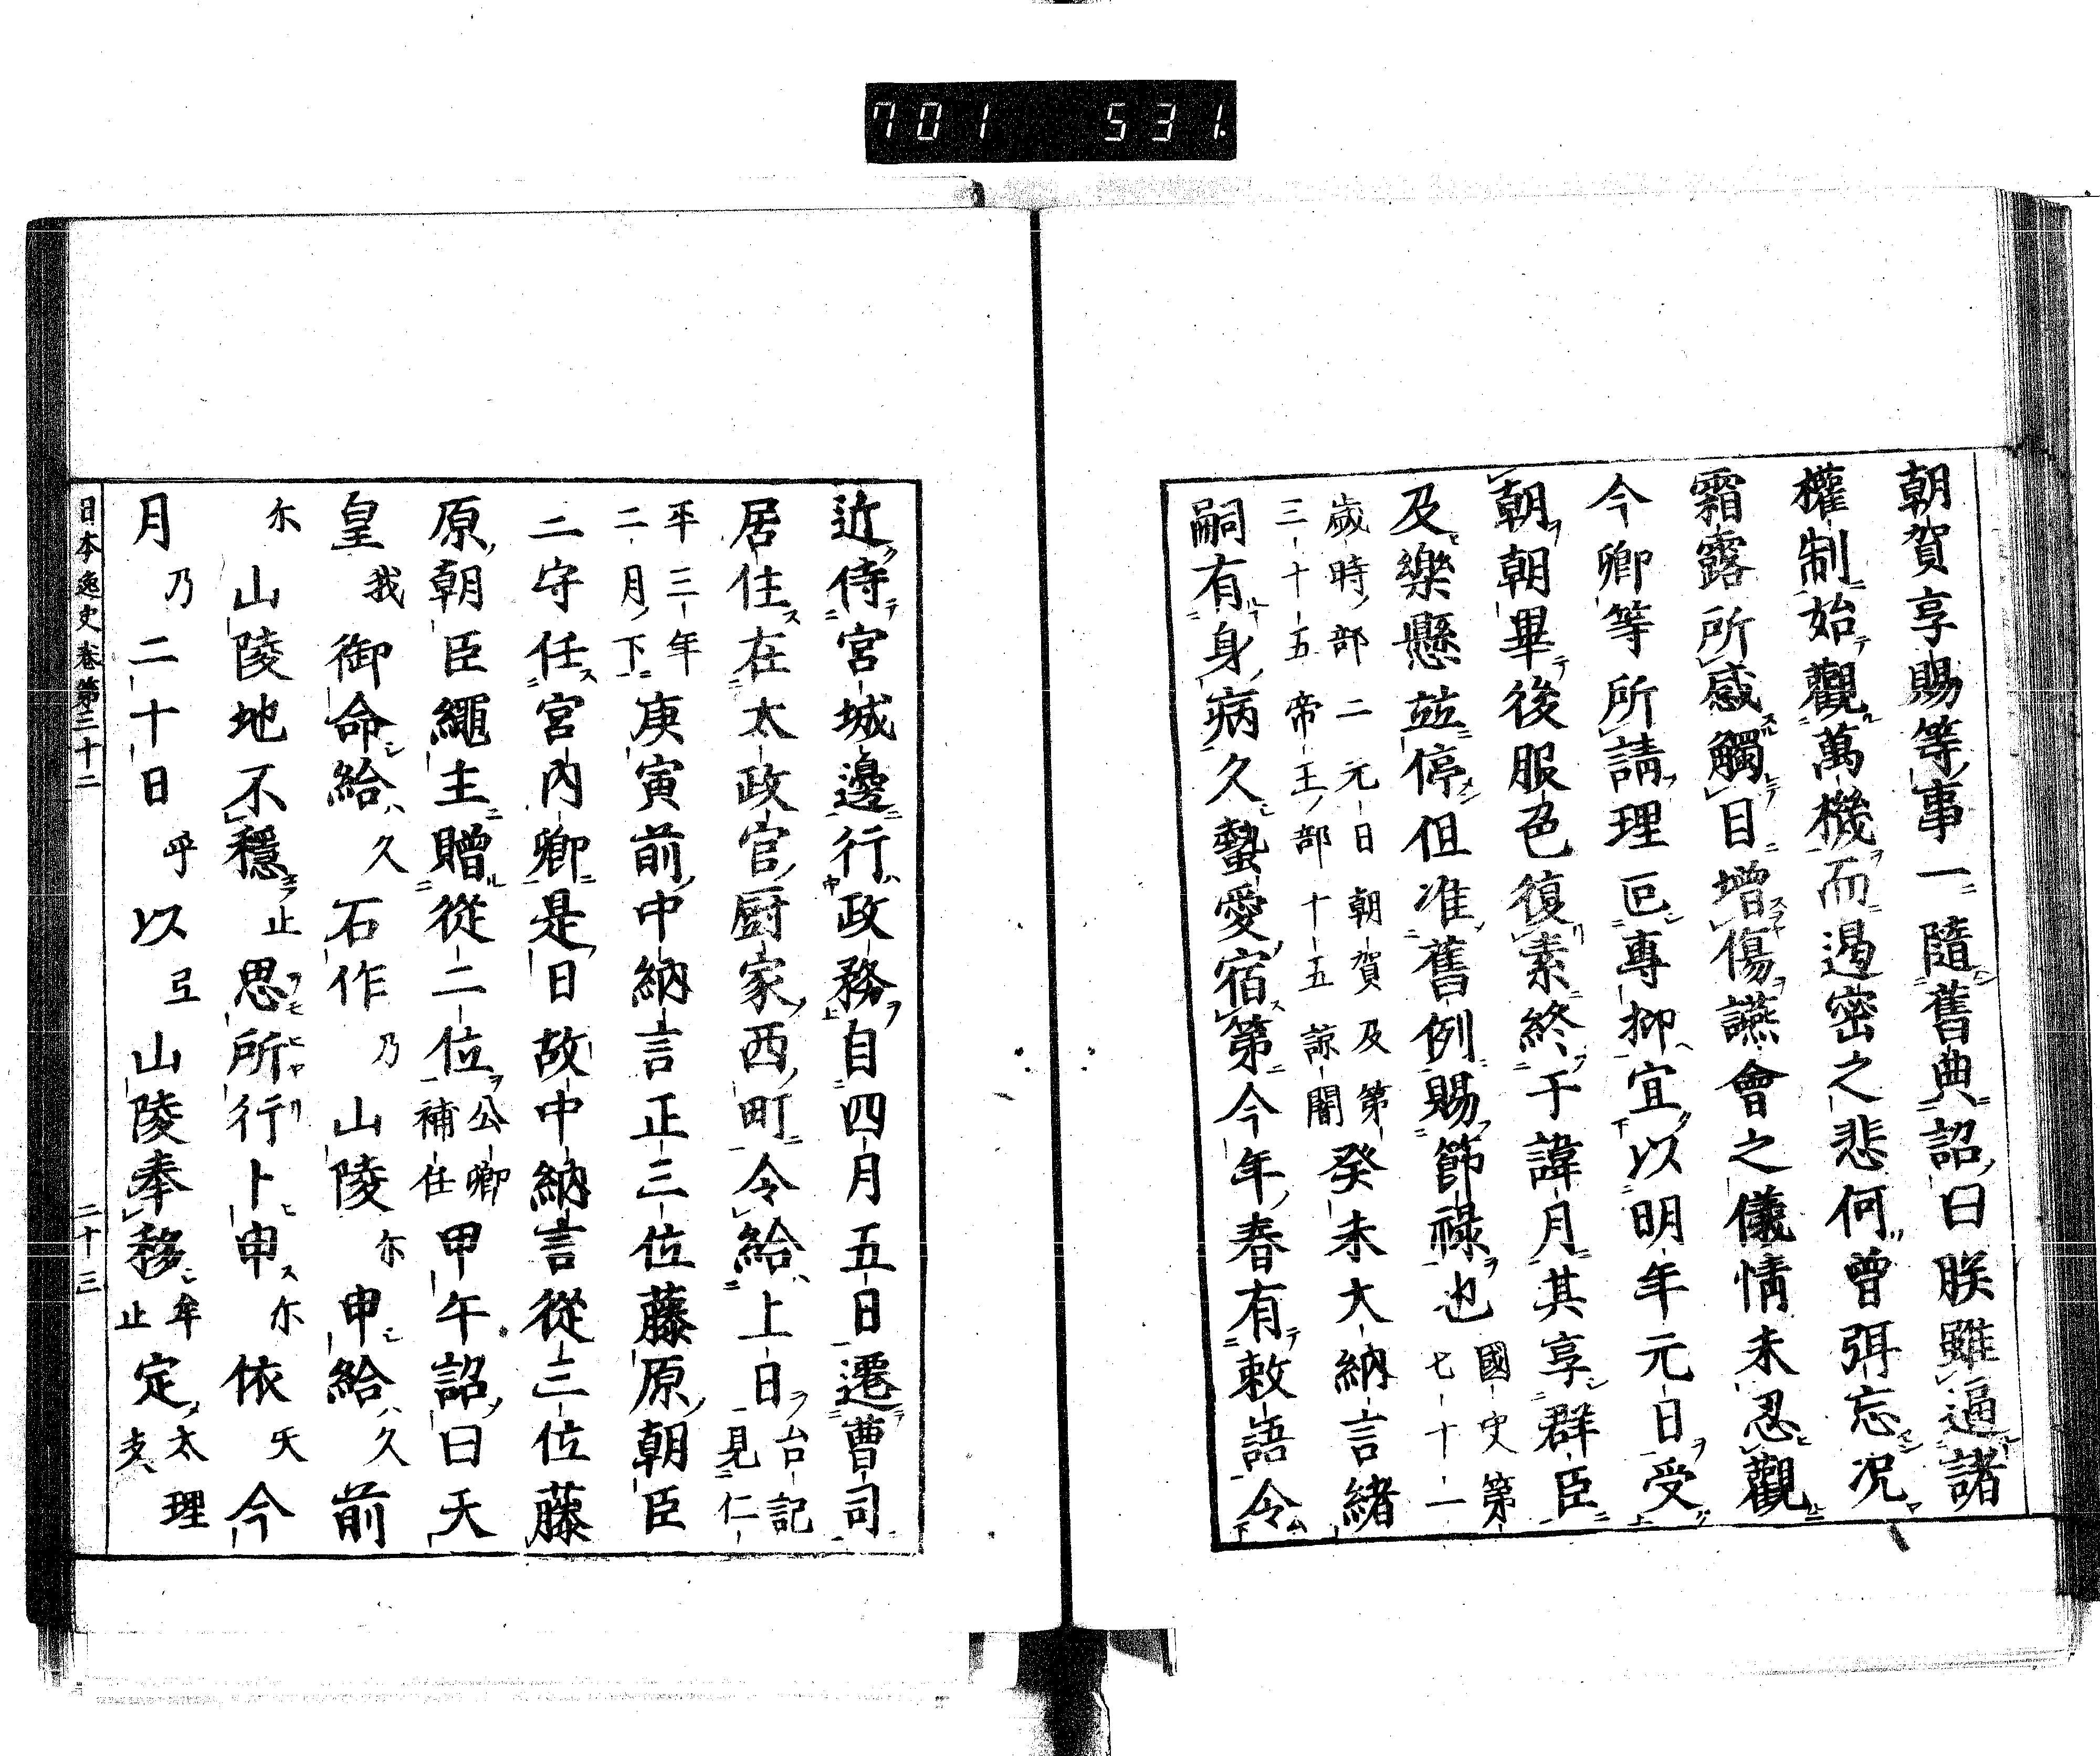 701 531.
朝賀享賜等事一隨舊典詔曰朕雖逼諸
權制始觀萬機而遏密之悲何曾弭忘况
霜露所感觸目增傷讌會之儀情未忍觀
今卿等所請理叵專抑宜以明年元日受
朝朝畢後服色復素終于諱月其享群臣
及樂懸竝停但准舊例賜節祿也國史第七十一
歲時部二元日朝賀及第三十五帝王部十五諒闇癸未大納言緒
嗣有身病久蟄愛宿第今年春有敕語令
近侍宮城邊行政務自四月五日遷曹司
居住在太政官厨家西町令給上日台記見仁
平三年二月下庚寅前中納言正三位藤原朝臣
二守任宮內卿是日故中納言從三位藤
原朝臣繩主贈從二位公卿補任甲午詔曰天
皇我御命給久石作乃山陵尓申給久前
尓山陵地不穩止思所行卜申尓依天今
月乃二十日乎以弖山陵奉移牟止定太理支
日本逸史卷第三十二 二十三